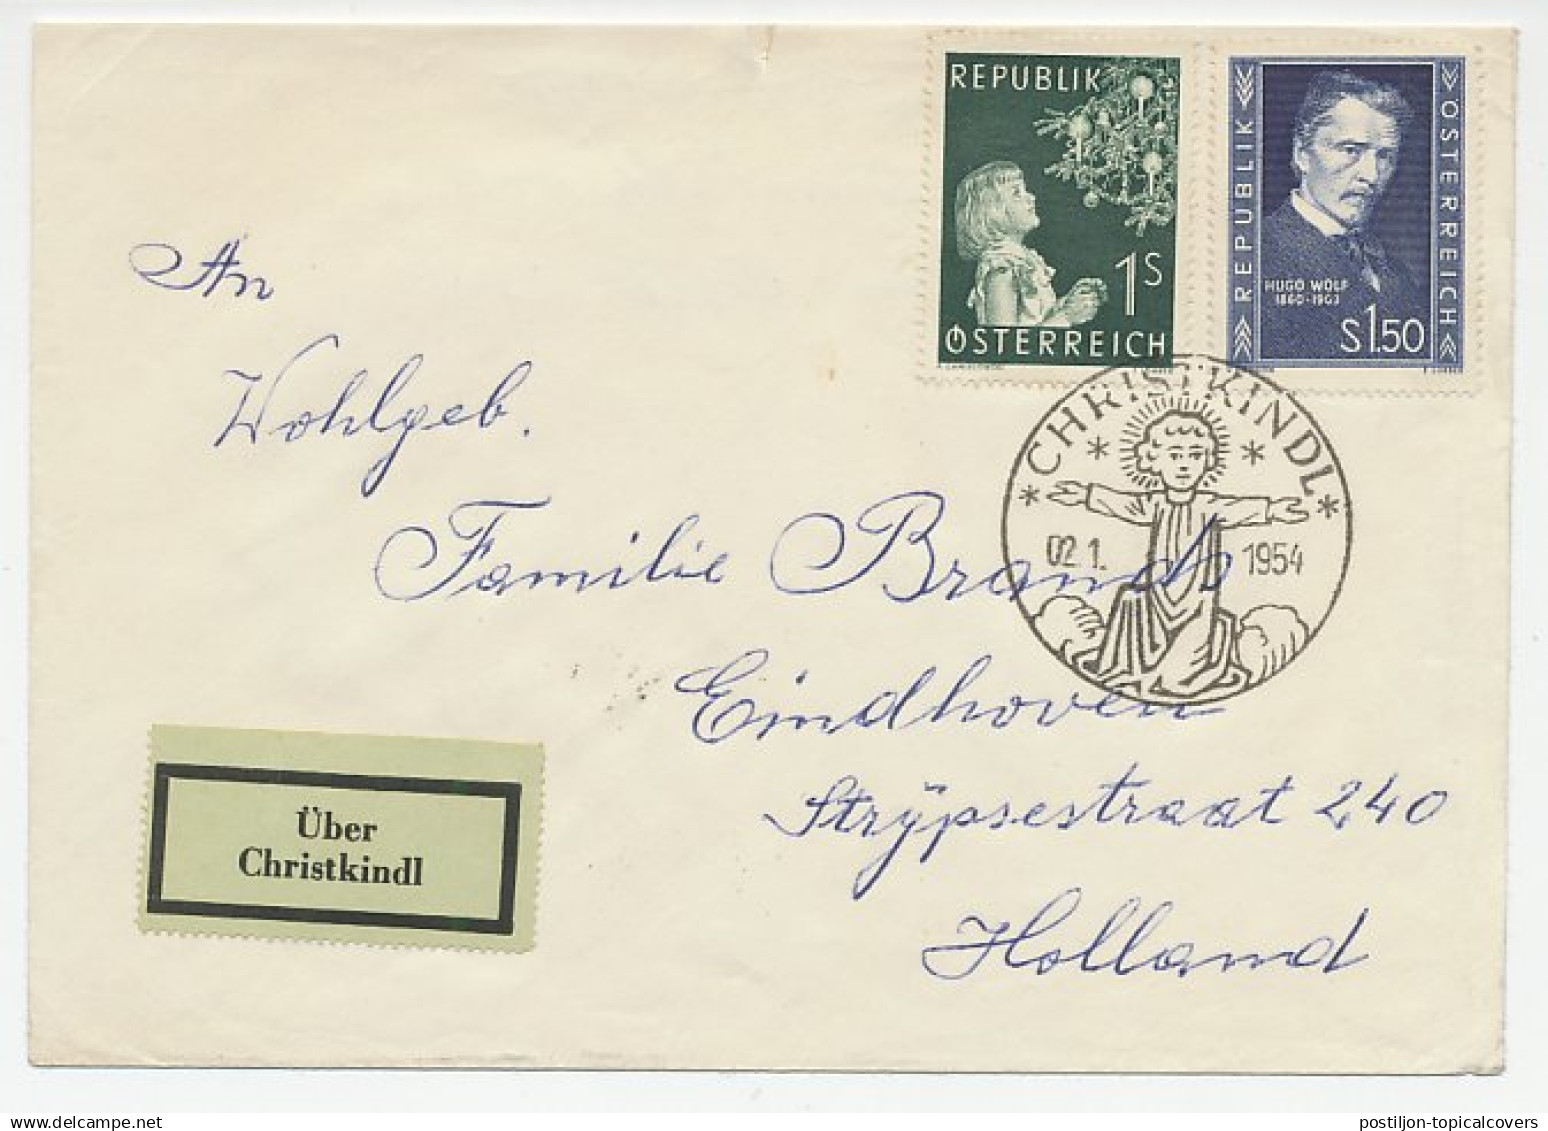 REPUBLIK
1S
ÖSTERREICH
REPUBLIK
ÖSTERREICH
HUGO WOLF
1860-1903
S1.50
* CHRISTKINDL *
02.1. 1954
An
Wohlgeb.
Familie Brands
Eindhoven
Strÿpsestraat 240
Holland
Über
Christkindl
postiljon-topicalcovers